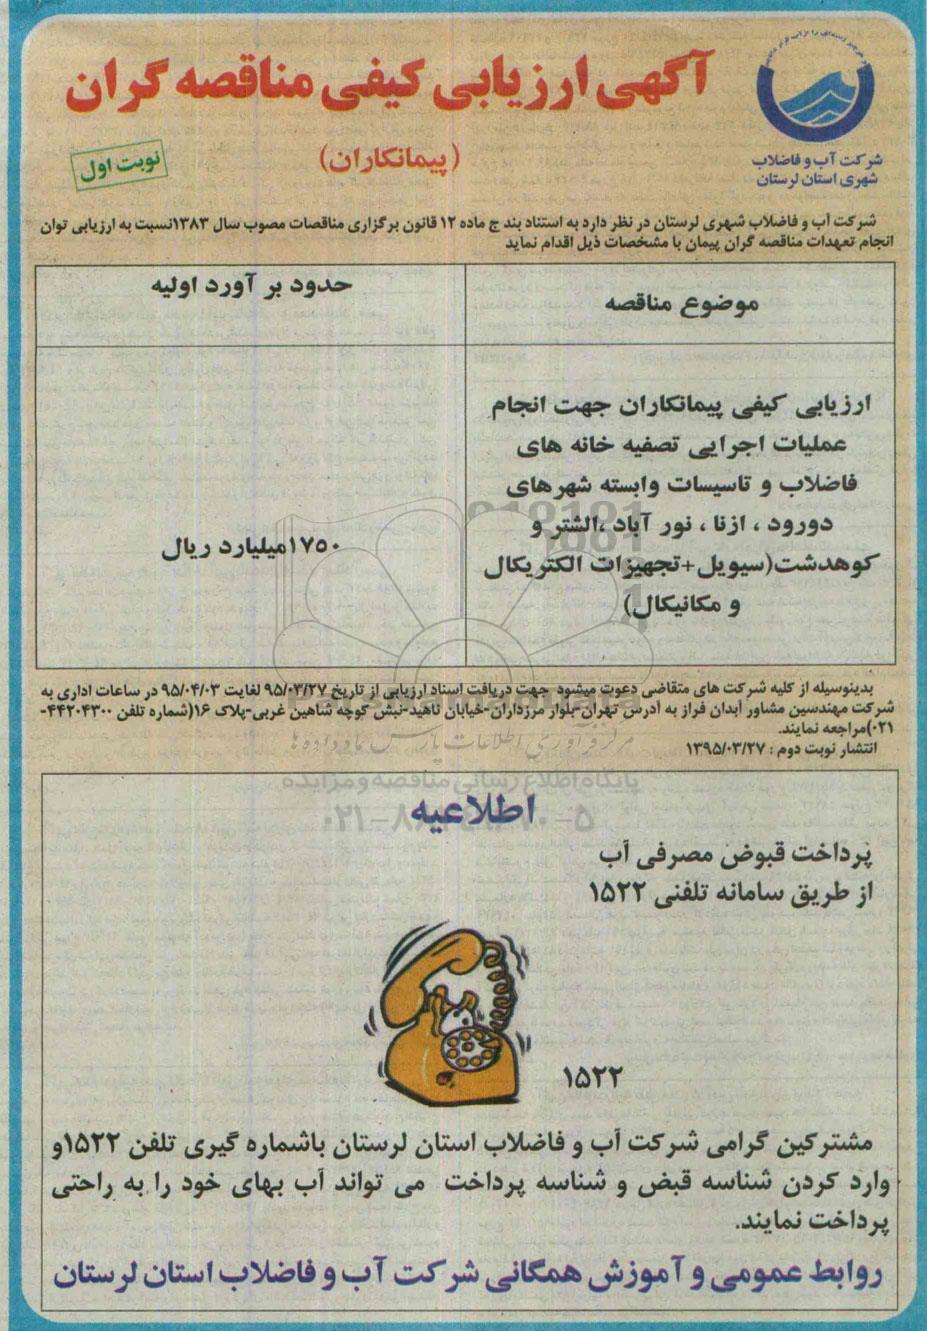 آگهی ارزیابی کیفی مناقصه گران
(پیمانکاران)
نوبت اول
شرکت آب و فاضلاب
شهری استان لرستان
شرکت آب و فاضلاب شهری لرستان در نظر دارد به استناد بند ج ماده ۱۲ قانون برگزاری مناقصات مصوب سال ۱۳۸۳نسبت به ارزیابی توان
انجام تعهدات مناقصه گران پیمان با مشخصات ذیل اقدام نماید
موضوع مناقصه
حدود بر آورد اولیه
ارزیابی کیفی پیمانکاران جهت انجام
عملیات اجرایی تصفیه خانه های
فاضلاب و تاسیسات وابسته شهرهای
دورود ، ازنا ، نور آباد ،الشتر و
کوهدشت(سیویل+تجهیزات الکتریکال
و مکانیکال)
۱۷۵۰میلیارد ریال
بدینوسیله از کلیه شرکت های متقاضی دعوت میشود جهت دریافت اسناد ارزیابی از تاریخ ۹۵/۰۳/۲۷ لغایت ۹۵/۰۴/۰۳ در ساعات اداری به
شرکت مهندسین مشاور آبدان فراز به آدرس تهران-بلوار مرزداران-خیابان ناهید-نبش کوچه شاهین غربی-پلاک ۱۶(شماره تلفن ۴۴۲۰۴۳۰۰-
۰۲۱)مراجعه نمایند.
انتشار نوبت دوم : ۱۳۹۵/۰۳/۲۷
مرکز فرآوری اطلاعات پارس نماد داده ها
پایگاه اطلاع رسانی مناقصه و مزایده
اطلاعیه
پرداخت قبوض مصرفی آب
از طریق سامانه تلفنی ۱۵۲۲
۱۵۲۲
مشترکین گرامی شرکت آب و فاضلاب استان لرستان باشماره گیری تلفن ۱۵۲۲و
وارد کردن شناسه قبض و شناسه پرداخت می تواند آب بهای خود را به راحتی
پرداخت نمایند.
روابط عمومی و آموزش همگانی شرکت آب و فاضلاب استان لرستان